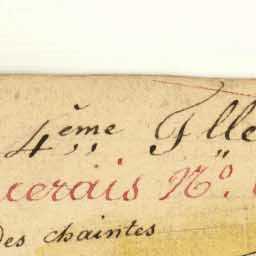 4ème Flle
ucerais No.
des chaintes